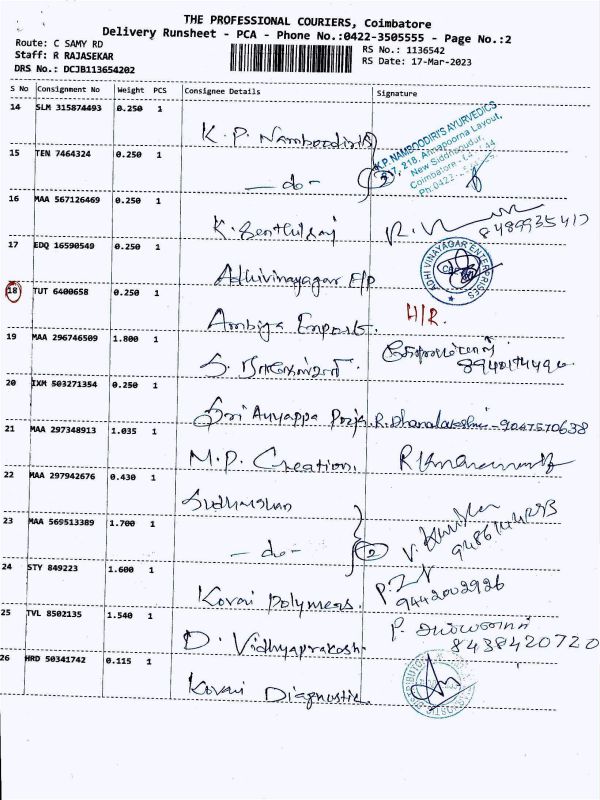 THE PROFESSIONAL COURIERS, Coimbatore
Delivery Runsheet - PCA - Phone No.:0422-3505555 - Page No.:2
Route: C SAMY RD
RS No.: 1136542
Staff: R RAJASEKAR
RS Date: 17-Mar-2023
DRS No.: DCJB113654202
S No Consignment No Weight PCS Consignee Details Signature
14 SLM 315874493 0.250 1 K.P. Namboodiris
K.P. NAMBOODIRI'S AYURVEDICS
218, Annapoorna Layout,
New Siddhapudur,
Coimbatore
15 TEN 7464324 0.250 1 - do -
16 MAA 567126469 0.250 1 K. Senthilraj
8489935417
17 EDQ 16590549 0.250 1 Adhivinayagar E/p
ADHI VINAYAGAR ENTERPRISES
18 TUT 6400658 0.250 1 Ambiga Exports. H/R.
19 MAA 296746509 1.800 1
20 IXM 503271354 0.250 1 Sri Ayyappa Pooja R. Dhanalakshmi - 9047570638
21 MAA 297348913 1.035 1 M.P. Creation.
22 MAA 297942676 0.430 1 Sudharshan
23 MAA 569513389 1.700 1 - do - 2
24 STY 849223 1.600 1 Kovai Polymers.
9442002926
25 TVL 8502135 1.540 1 D. Vidhyaprakash.
8438420720
26 HRD 50341742 0.115 1 Kovai Diagnostic.